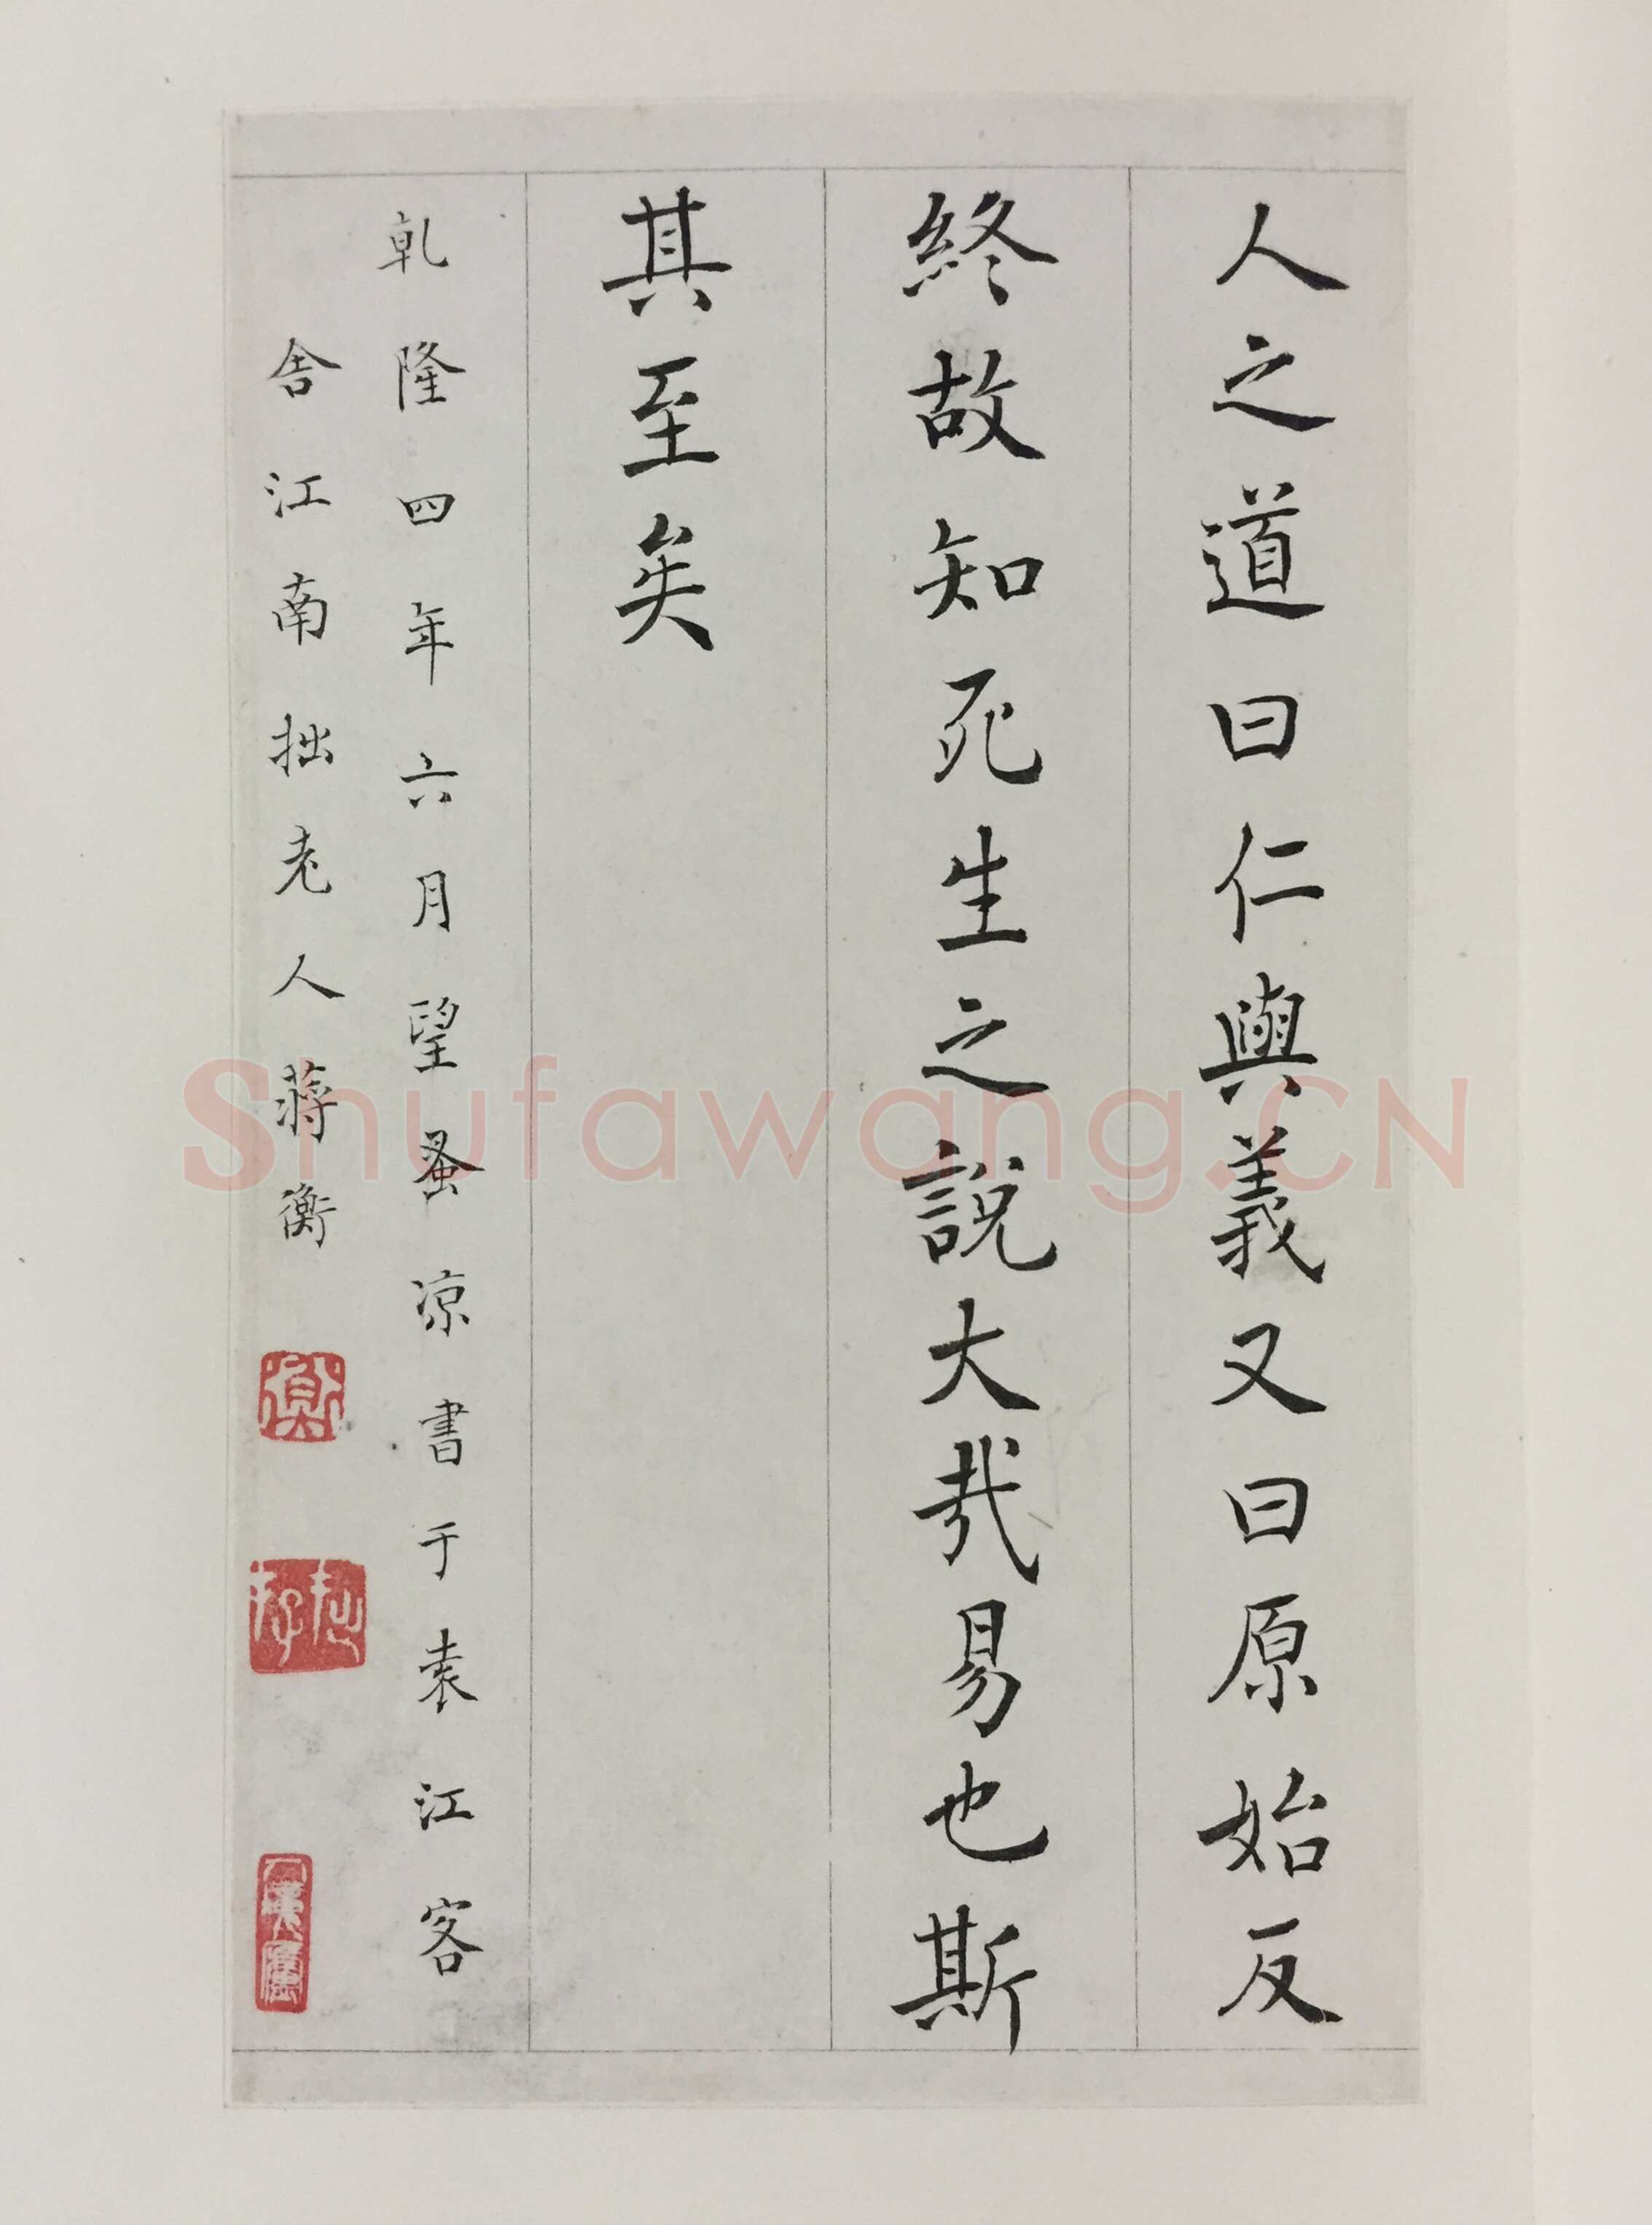 人之道曰仁與義又曰原始反
終故知死生之說大哉易也斯
其至矣
乾隆四年六月望蚤凉書于袁江客
舍江南拙老人蔣衡
衡
拙存
Shufawang.CN